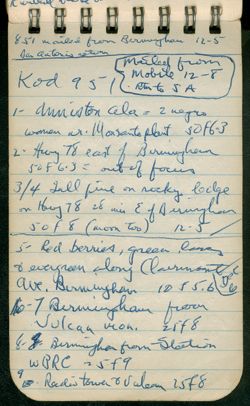 851 mailed from Birmingham 12-5
San Antonio
Mailed from
Mobile
12-8
Rtn to SA
Kod 951
1- Anniston Ala = 2 negro
women nr. Monsanto plant 50 f 6.3
2- Hwy 78 east of Birmingham
50 f 6.3 = out of focus
3/4 Tall pine on rocky ledge
on Hwy 78 20 mi E of Birmingham
50 f 8 (moon too) 12-5
5- Red berries, green leaves
evergreen along Clairmont
Ave. Birmingham 10 f 5.6
6-7 Birmingham from
Vulcan mon. 25 f 8
8- Birmingham from Station
WBRC = 5 f 9
9 Radio tower & Vulcan 25 f 8